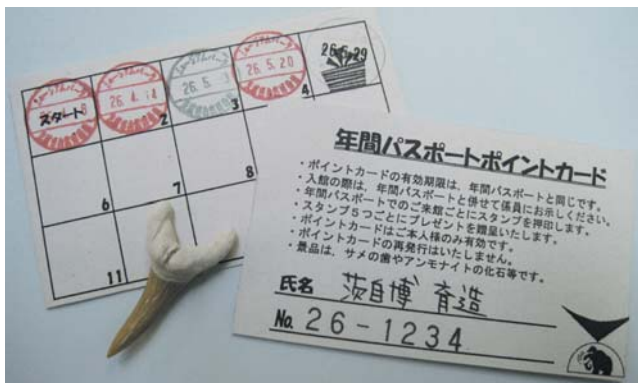 スタート
26.4.14
26.5.3
26.5.20
26.5.29
2
3
4
6
7
8
11
年間パスポートポイントカード
・ポイントカードの有効期限は、年間パスポートと同じです。
・入館の際は、年間パスポートと併せて係員にお示しください。
・年間パスポートでのご来館ごとにスタンプを押印します。
・スタンプ5つごとにプレゼントを贈呈いたします。
・ポイントカードはご本人様のみ有効です。
・ポイントカードの再発行はいたしません。
・景品は、サメの歯やアンモナイトの化石等です。
氏名 茨自博 育造
No. 26-1234